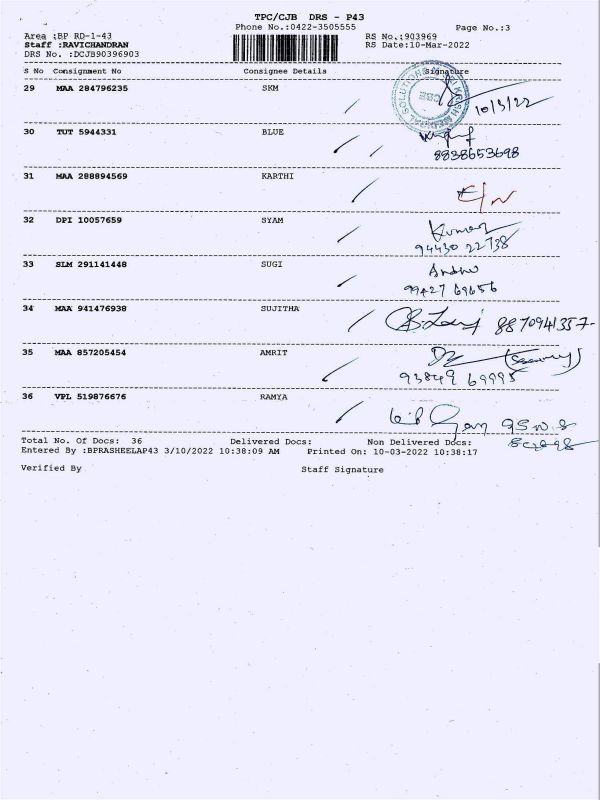 TPC/CJB DRS - P43
Phone No.:0422-3505555
Page No.:3
Area :BP RD-1-43
RS No.:903969
Staff :RAVICHANDRAN
RS Date:10-Mar-2022
DRS No. :DCJB90396903
S No Consignment No Consignee Details Signature
29 MAA 284796235 SKM
10/3/22
30 TUT 5944331 BLUE
8838653698
31 MAA 288894569 KARTHI
32 DPI 10057659 SYAM
Kumar
94430 22738
33 SLM 291141448 SUGI
99427 69656
34 MAA 941476938 SUJITHA
8870941357-
35 MAA 857205454 AMRIT
36 VPL 519876676 RAMYA
Total No. Of Docs: 36 Delivered Docs: Non Delivered Docs:
Entered By :BPRASHEELAP43 3/10/2022 10:38:09 AM Printed On: 10-03-2022 10:38:17
Verified By Staff Signature